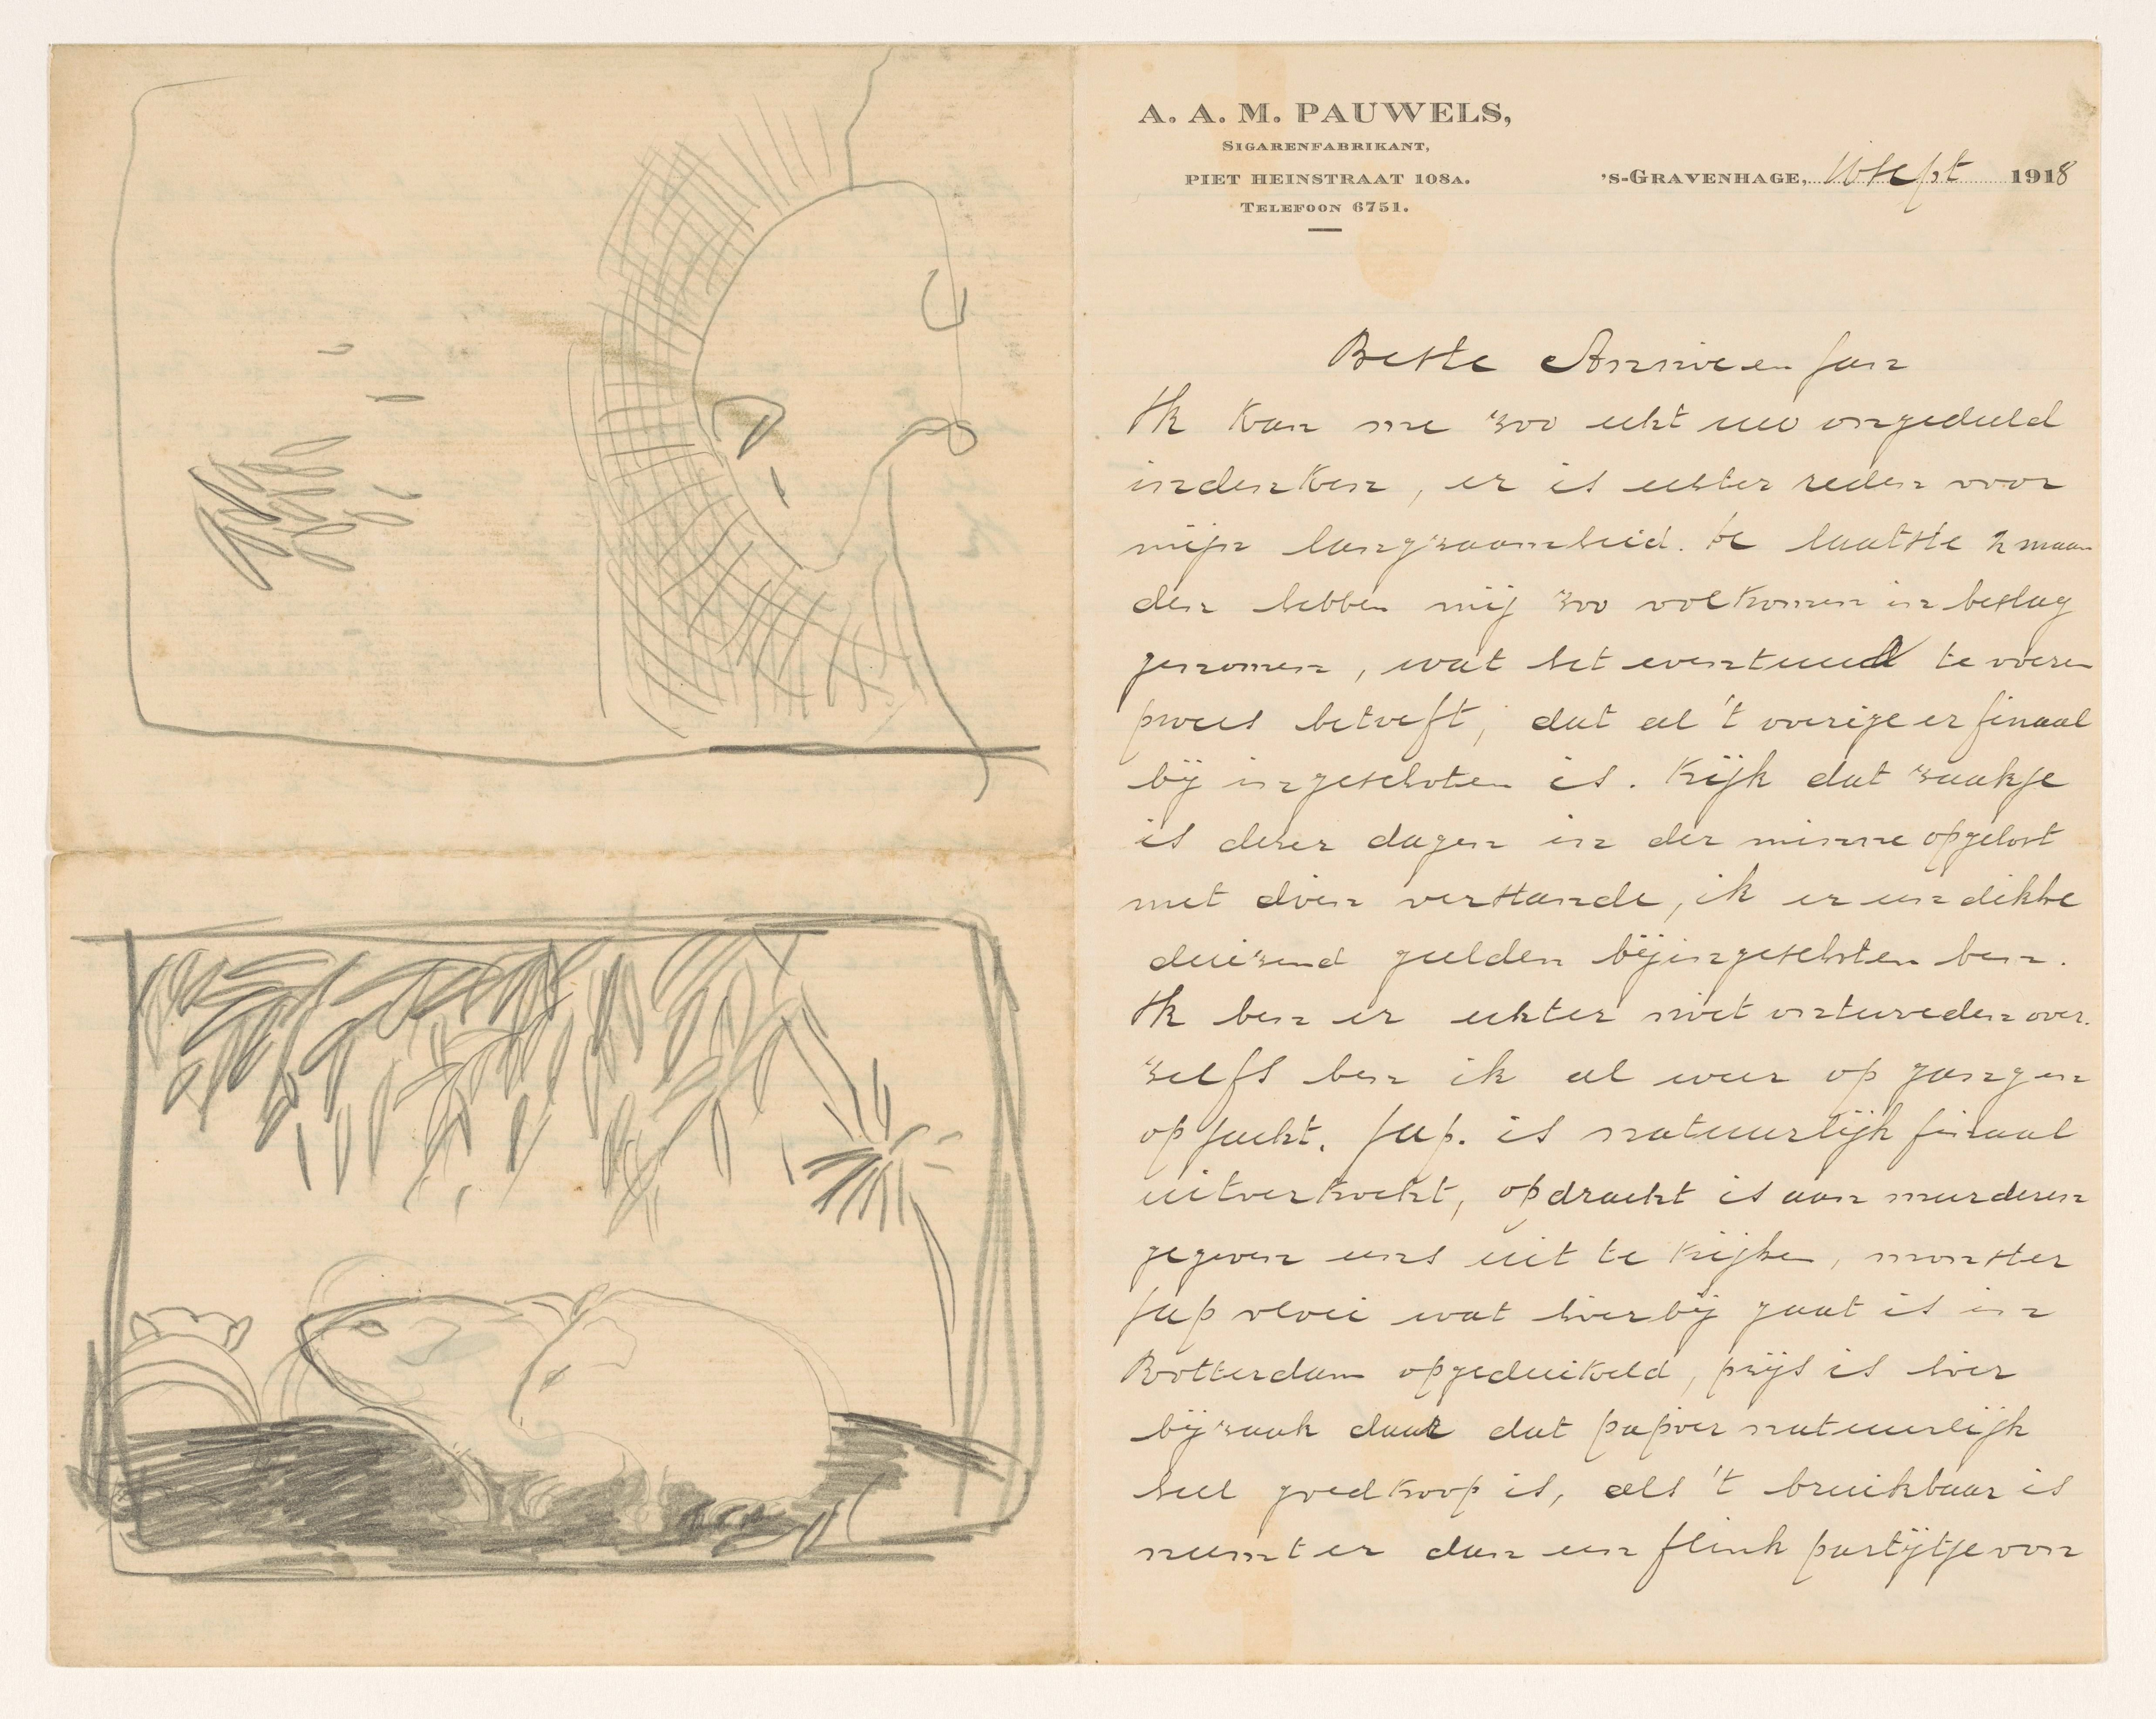 A. A. M. PAUWELS,
SIGARENFABRIKANT,
PIET HEINSTRAAT 108A.
TELEFOON 6751.
'S-GRAVENHAGE, Sept 1918
Beste Annie en Jan
Ik kan me zoo echt uw ongeduld
indenken, er is echter reden voor
mijn langzaamheid. De laatste 2 maan
den hebben mij zoo volkomen in beslag
genomen, wat het eventueel te voeren
proces betreft, dat al 't overige er finaal
bij ingeschoten is. Kijk dat zaakje
is dezer dagen in der minne opgelost
met dien verstande, ik er een dikke
duizend gulden bijingeschoten ben.
Ik ben er echter niet ontevreden over.
Zelfs ben ik al weer op gangen
op jacht. Jap. is natuurlijk finaal
uitverkocht, opdracht is aan meerderen
gegeven eens uit te kijken, monster
Jap vloei wat hierbij gaat is in
Rotterdam opgeduikeld, prijs is hier
bijzaak daar dat papier natuurlijk
heel goedkoop is, als 't bruikbaar is
neemt er dan een flink partijtje van